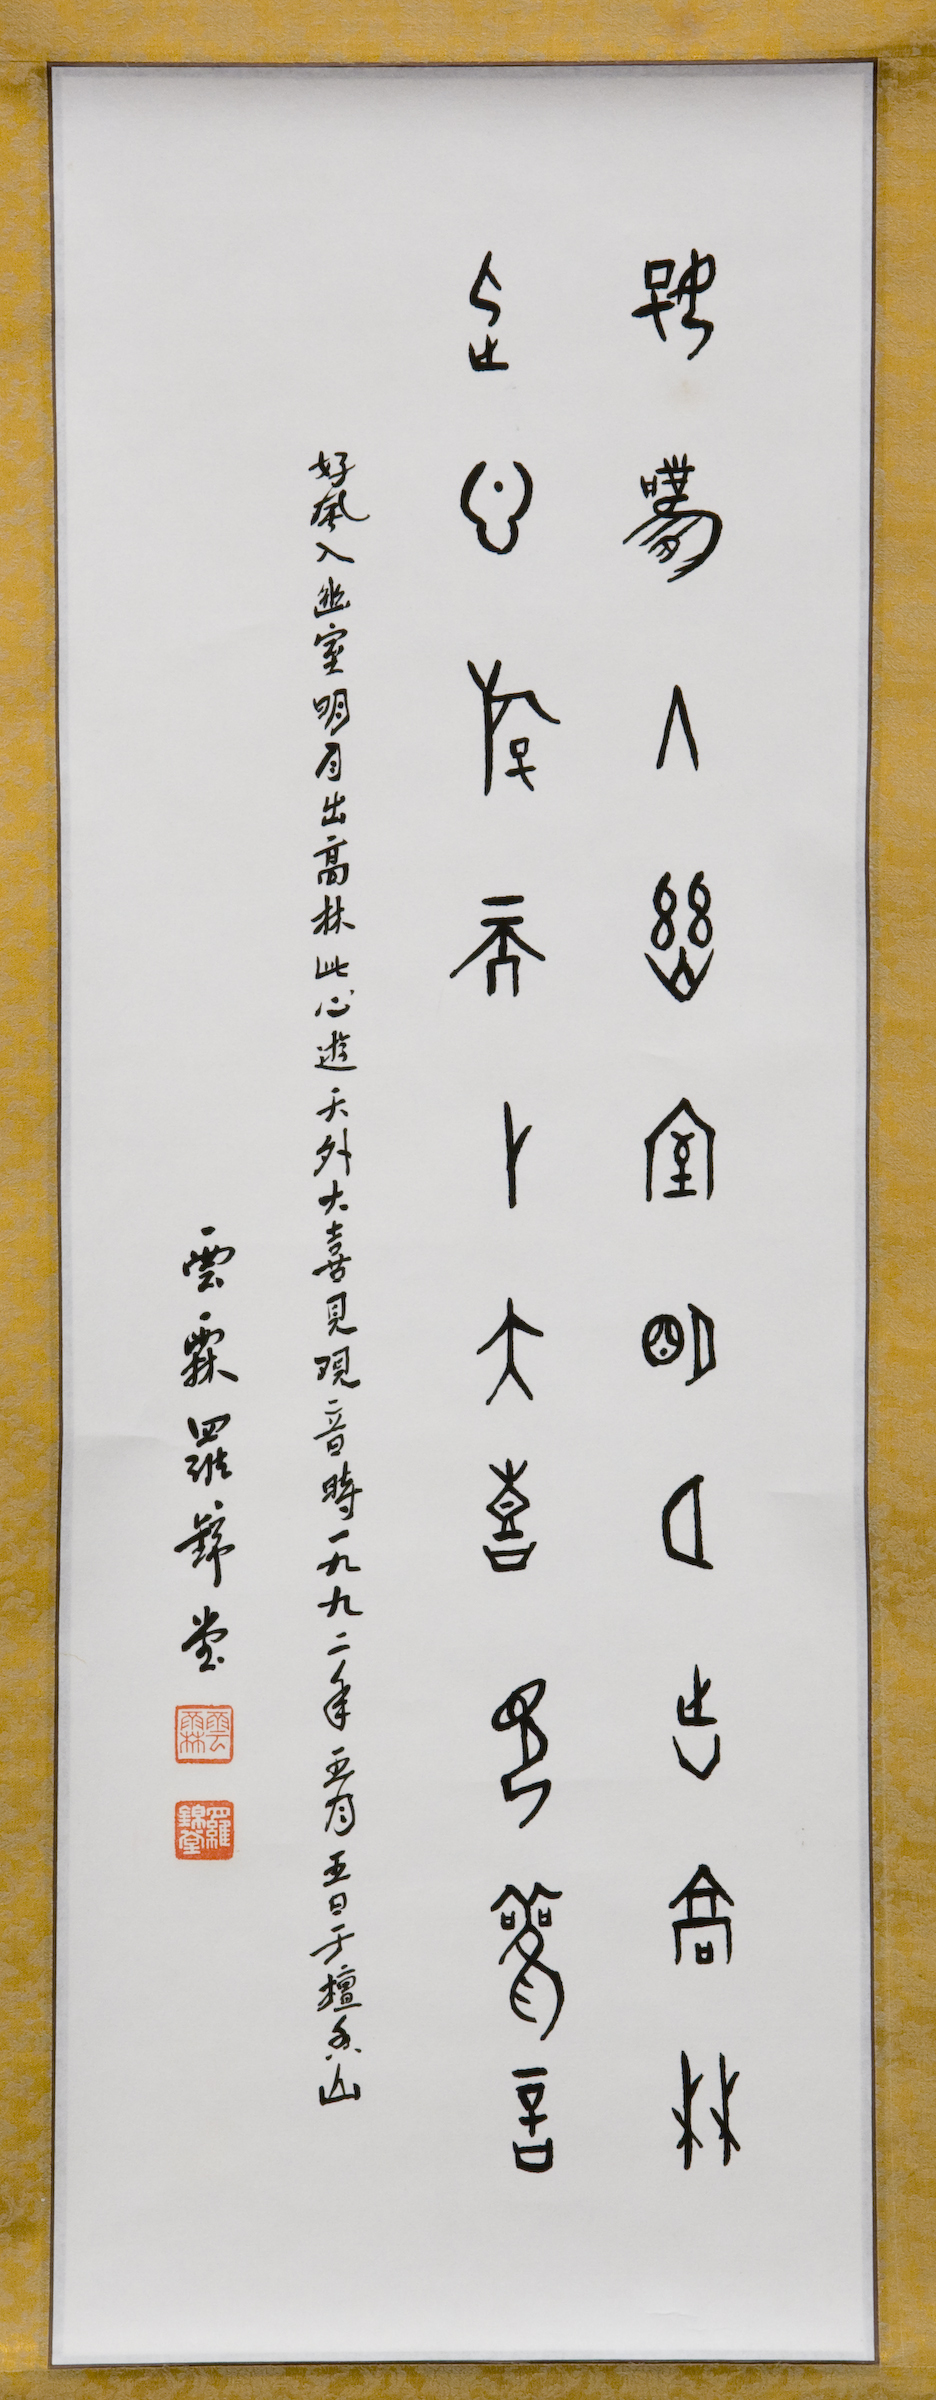 好風入幽室明月出高林
此心遊天外大喜見觀音
好風入幽室明月出高林此心遊天外大喜見觀音時一九九二年五月五日于檀香山
雲霖羅錦堂
雲霖
羅錦堂